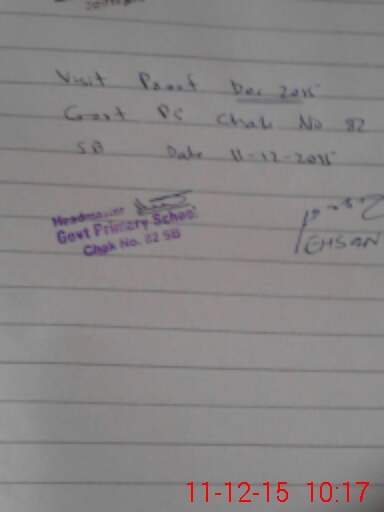 Visit Proof Dec 2015
Govt PS Chak No 82
SB Date 11-12-2015
Headmaster
Govt Primary School
Chak No. 82 SB
EHSAN
11-12-15 10:17